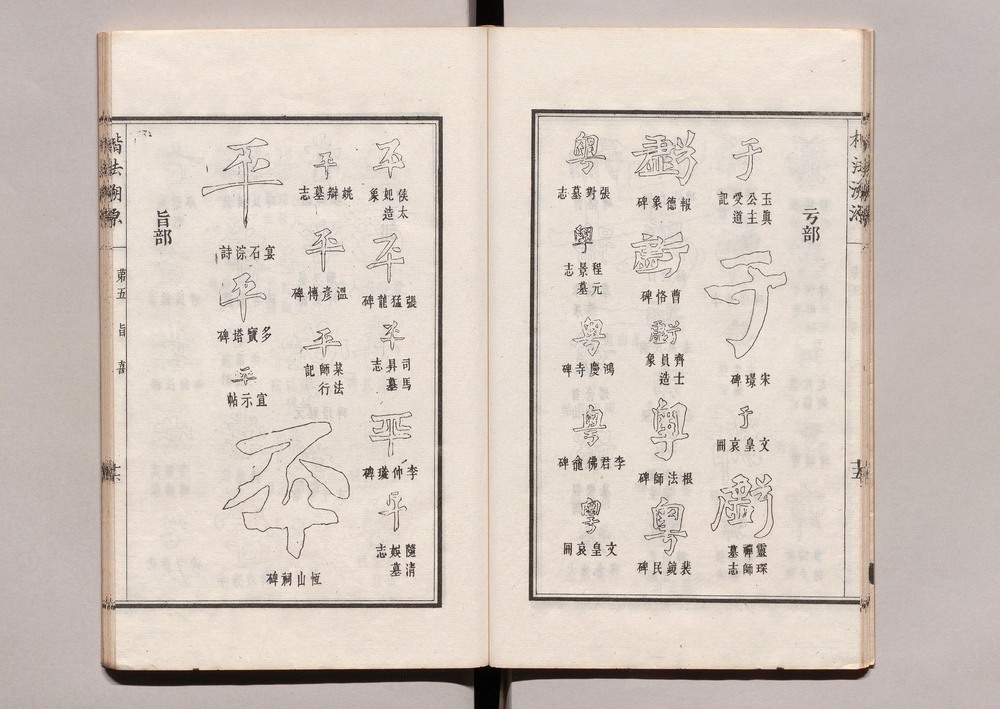 亏部
于
玉眞公主受道記
于
宋璟碑
于
文皇哀冊
虧
靈琛禪師墓志
虧
報德象碑
虧
曹恪碑
虧
齊士員造象
粵
根法師碑
粵
裴鏡民碑
粵
張對墓志
粵
程景元墓志
粵
鴻慶寺碑
粵
李君佛龕碑
粵
文皇哀冊
平
侯太妃造象
平
張猛龍碑
平
司馬昇墓志
平
李仲璇碑
平
隨清娛墓志
平
姚辯墓志
平
溫彥博碑
平
法師行記
平
宴石淙詩
平
多寶塔碑
平
宜示帖
平
恆山祠碑
旨部
楷法溯源
第五
旨
喜